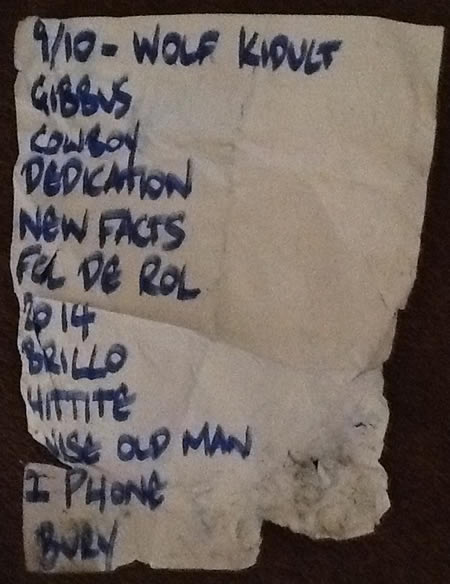 9/10 - WOLF KIDULT
GIBBUS
COWBOY
DEDICATION
NEW FACTS
FOL DE ROL
2014
BRILLO
HITTITE
WISE OLD MAN
I PHONE
BURY